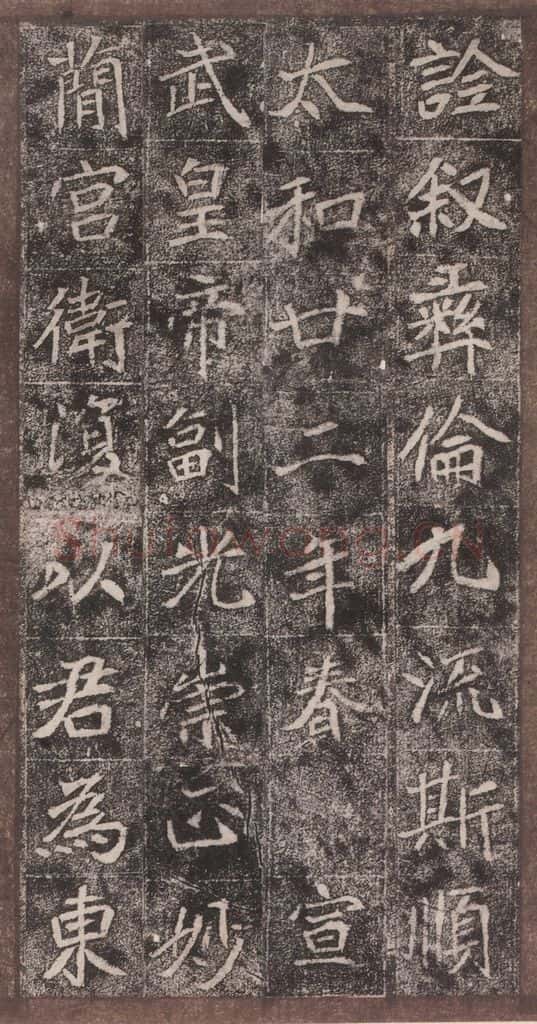 詮叙彝倫九流斯順
太和廿二年春 宣
武皇帝副光崇正妙
蕑宮衛復以君為東